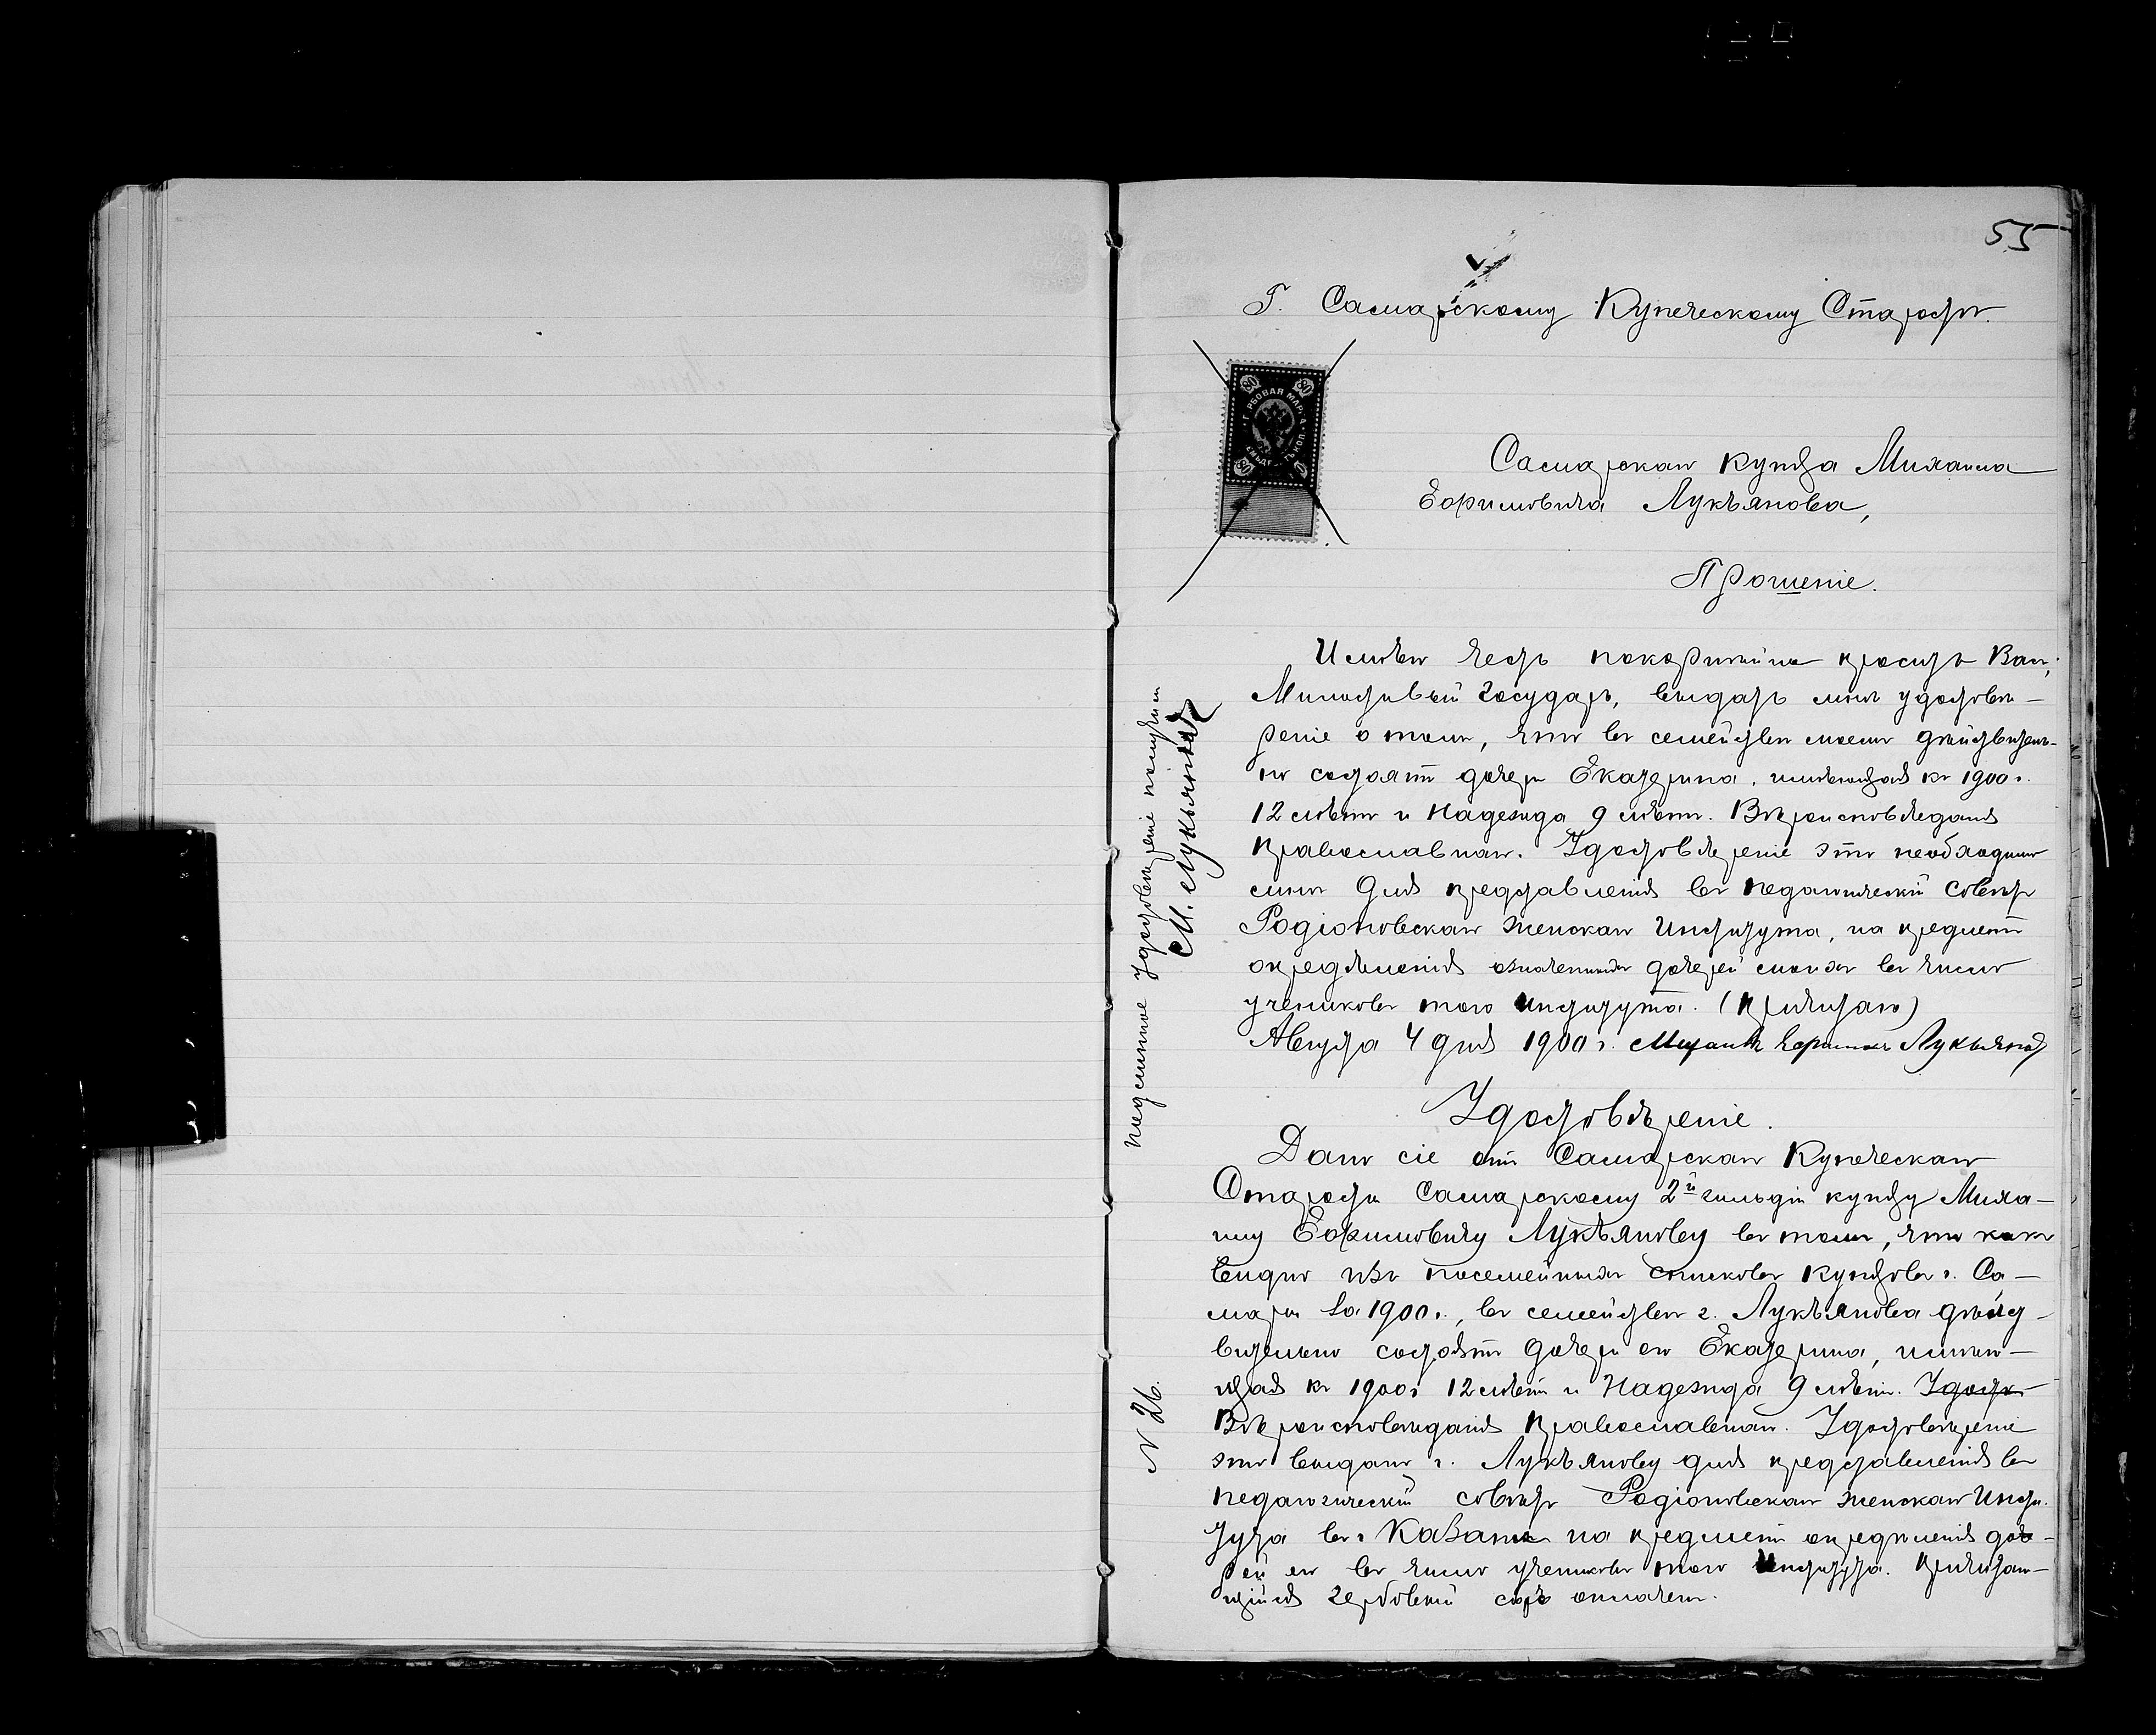 55
Г. Самарскому Купеческому Старостѣ.
ГЕРБОВАЯ МАРКА
80 80
80
Самарскаго купца Михаила
Ефимовича Лукьянова,
Прошеніе.
Имѣю честь покорнѣйше просить Васъ,
Милостивый Государь, выдать мнѣ удостовѣ-
реніе о томъ, что въ семействѣ моемъ дѣйствитель-
но состоятъ дочери Екатерина, имѣющая къ 1900 г.
12 лѣтъ и Надежда 9 лѣтъ. Вѣроисповѣданія
православнаго. Удостовѣреніе это необходимо
мнѣ для представленія въ педагогическій совѣтъ
Родіоновскаго женскаго Института, на предметъ
опредѣленія означенныхъ дочерей моихъ въ число
учениковъ того института. (
Августа 4 дня 1900 г. Михаилъ Ефимовъ Лукьяновъ
Удостовѣреніе.
Дано сіе отъ Самарскаго Купеческаго
Старосты Самарскому 2й гильдіи купцу Миха-
илу Ефимовичу Лукьянову въ томъ, что какъ
видно изъ посемейныхъ списковъ купцовъ г. Са-
мары за 1900 г., въ семействѣ г. Лукьянова дѣйст-
вительно состоятъ дочери его Екатерина, имѣю-
щая къ 1900 г 12 лѣтъ и Надежда 9 лѣтъ. Удостъ
Вѣроисповѣданія православнаго. Удостовѣреніе
это выдано г. Лукьянову для представленія въ
педагогическій совѣтъ Родіоновскаго женскаго Инсти-
тута въ г Казани на предметъ опредѣленія доче-
рей его въ число учениковъ того Института. Причитаю-
щійся гербовый сборъ оплаченъ.
Подлинное удостовѣреніе получилъ
М. Лукьяновъ
N 26.